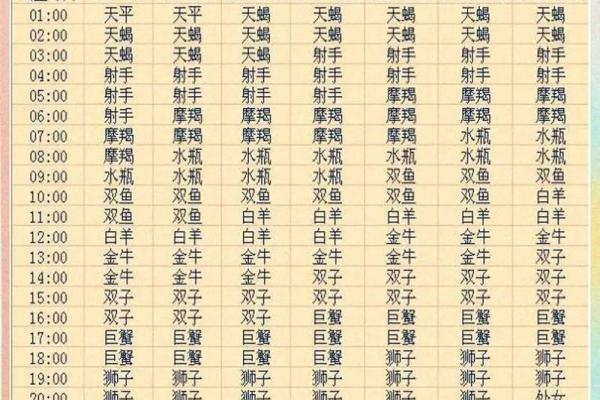 01:00 天平 天平 天蝎 天蝎 天蝎 天蝎 天蝎
02:00 天蝎 天蝎 天蝎 天蝎 天蝎 天蝎 天蝎
03:00 天蝎 天蝎 天蝎 射手 射手 射手 射手
04:00 射手 射手 射手 射手 射手 射手 射手
05:00 射手 射手 射手 射手 摩羯 摩羯 摩羯
06:00 射手 摩羯 摩羯 摩羯 摩羯 摩羯 摩羯
07:00 摩羯 摩羯 摩羯 摩羯 摩羯 水瓶 水瓶
08:00 摩羯 水瓶 水瓶 水瓶 水瓶 水瓶 水瓶
09:00 水瓶 水瓶 水瓶 水瓶 双鱼 双鱼 双鱼
10:00 双鱼 双鱼 双鱼 双鱼 双鱼 双鱼 白羊
11:00 双鱼 双鱼 白羊 白羊 白羊 白羊 白羊
12:00 白羊 白羊 白羊 白羊 金牛 金牛 金牛
13:00 金牛 金牛 金牛 金牛 金牛 金牛 双子
14:00 金牛 金牛 金牛 双子 双子 双子 双子
15:00 双子 双子 双子 双子 双子 双子 双子
16:00 双子 双子 双子 巨蟹 巨蟹 巨蟹 巨蟹
17:00 巨蟹 巨蟹 巨蟹 巨蟹 巨蟹 巨蟹 巨蟹
18:00 巨蟹 巨蟹 巨蟹 巨蟹 狮子 狮子 狮子
19:00 狮子 狮子 狮子 狮子 狮子 狮子 狮子
20:00 狮子 狮子 狮子 狮子 狮子 狮子 处女